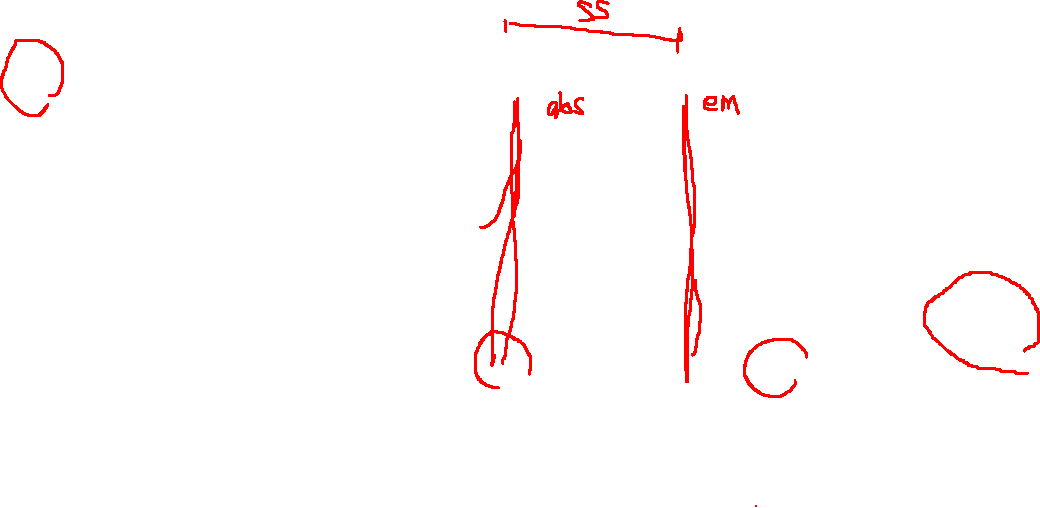 SS
abs
em